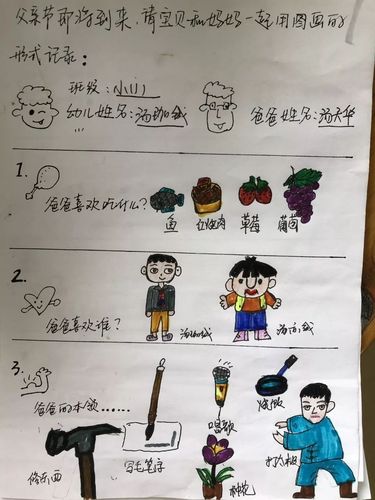 父亲节即将到来,请宝贝和妈妈一起用图画的
形式记录:
班级:小
幼儿姓名:汤
爸爸姓名:汤天华
1.
爸爸喜欢吃什么?
鱼 红烧肉 草莓 葡萄
2.
爸爸喜欢谁?
3.
爸爸的本领……
唱歌 烧饭
修东西 写毛笔字 种花 打太极